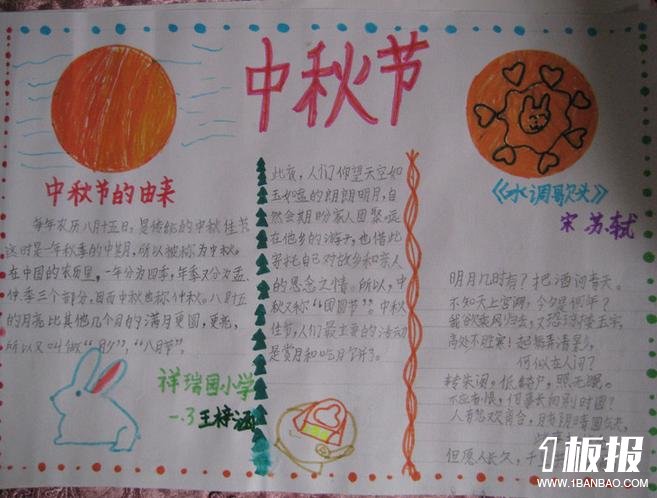 中秋节
中秋节的由来
每年农历八月十五日，是传统的中秋佳节。
这时是一年秋季的中期，所以被称为中秋。
在中国的农历里，一年分为四季，年季又分为孟、
仲、季三个部分，因而中秋也称仲秋。八月十五
的月亮比其他几个月的满月更圆，更亮，
所以又叫做“月夕”，“八月节”。
祥瑞园小学
一.3 王梓涵
此夜，人们仰望天空如
玉如盘的朗朗明月，自
然会期盼家人团聚。远
在他乡的游子，也借此
寄托自己对故乡和亲人
的思念之情。所以，中
秋又称“团圆节”。中秋
佳节，人们最主要的活动
是赏月和吃月饼了。
《水调歌头》
宋 苏轼
明月几时有？把酒问青天。
不知天上宫阙，今夕是何年？
我欲乘风归去，又恐琼楼玉宇，
高处不胜寒！起舞弄清影，
何似在人间？
转朱阁，低绮户，照无眠。
不应有恨，何事长向别时圆？
人有悲欢离合，月有阴晴圆缺，
但愿人长久，千
1板报
WWW.1BANBAO.COM